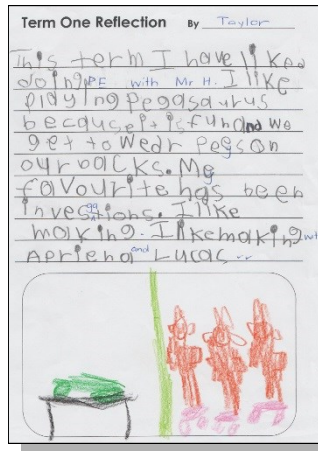 Term One Reflection By Taylor
This term I have liked
doing PE with Mr H. I like
playing pegasaurus
because it is fun and we
get to wear pegs on
our backs. My
favourite has been
investions. I like
making. I like making with
Apriena and Lucas